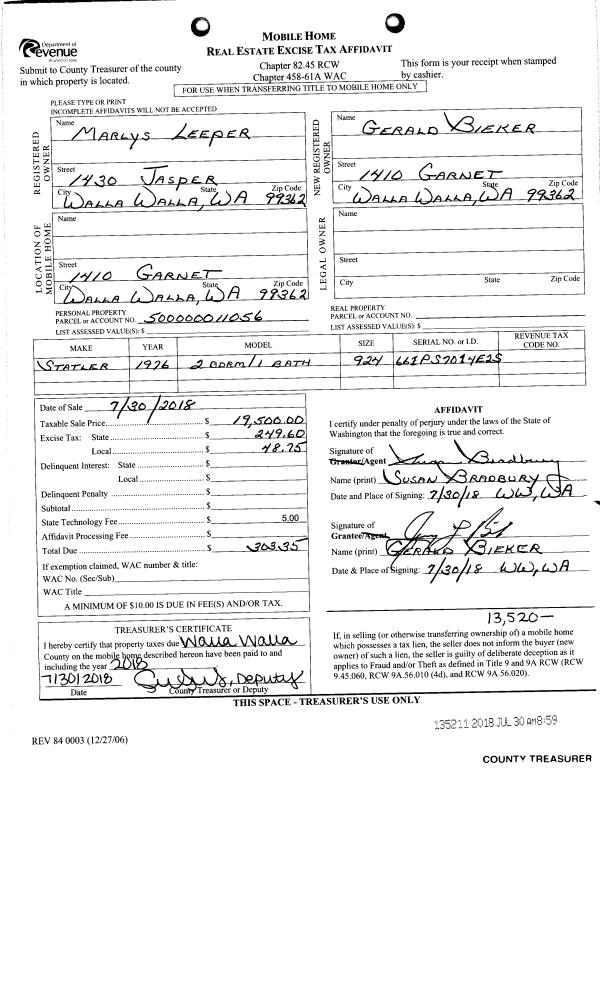 Department of
Revenue
Washington State
MOBILE HOME
REAL ESTATE EXCISE TAX AFFIDAVIT
Submit to County Treasurer of the county
in which property is located.
Chapter 82.45 RCW
Chapter 458-61A WAC
This form is your receipt when stamped
by cashier.
FOR USE WHEN TRANSFERRING TITLE TO MOBILE HOME ONLY
PLEASE TYPE OR PRINT
INCOMPLETE AFFIDAVITS WILL NOT BE ACCEPTED
REGISTERED OWNER
Name
MARLYS LEEPER
Street
1430 JASPER
City State Zip Code
WALLA WALLA, WA 99362
NEW REGISTERED OWNER
Name
GERALD BIEKER
Street
1410 GARNET
City State Zip Code
WALLA WALLA, WA 99362
LOCATION OF MOBILE HOME
Name
Street
1410 GARNET
City State Zip Code
WALLA WALLA, WA 99362
LEGAL OWNER
Name
Street
City State Zip Code
PERSONAL PROPERTY
PARCEL or ACCOUNT NO. 500000011056
LIST ASSESSED VALUE(S): $
REAL PROPERTY
PARCEL or ACCOUNT NO.
LIST ASSESSED VALUE(S): $
MAKE YEAR MODEL SIZE SERIAL NO. or I.D. REVENUE TAX CODE NO.
STATLER 1976 2 BDRM/1 BATH 924 661PS7014E2S
Date of Sale 7/30/2018
Taxable Sale Price $ 19,500.00
Excise Tax: State $ 249.60
Local $ 48.75
Delinquent Interest: State $
Local $
Delinquent Penalty $
Subtotal $
State Technology Fee $ 5.00
Affidavit Processing Fee $
Total Due $ 303.35
If exemption claimed, WAC number & title:
WAC No. (Sec/Sub)
WAC Title
A MINIMUM OF $10.00 IS DUE IN FEE(S) AND/OR TAX.
AFFIDAVIT
I certify under penalty of perjury under the laws of the State of
Washington that the foregoing is true and correct.
Signature of
Grantor/Agent Susan Bradbury
Name (print) SUSAN BRADBURY
Date and Place of Signing: 7/30/18 WW, WA
Signature of
Grantee/Agent
Name (print) GERALD BIEKER
Date & Place of Signing: 7/30/18 WW, WA
13,520-
TREASURER'S CERTIFICATE
I hereby certify that property taxes due Walla Walla
County on the mobile home described hereon have been paid to and
including the year 2018
7/30/2018 , Deputy
Date County Treasurer or Deputy
If, in selling (or otherwise transferring ownership of) a mobile home
which possesses a tax lien, the seller does not inform the buyer (new
owner) of such a lien, the seller is guilty of deliberate deception as it
applies to Fraud and/or Theft as defined in Title 9 and 9A RCW (RCW
9.45.060, RCW 9A.56.010 (4d), and RCW 9A.56.020).
THIS SPACE - TREASURER'S USE ONLY
135211 2018 JUL 30 AM 8:59
REV 84 0003 (12/27/06)
COUNTY TREASURER